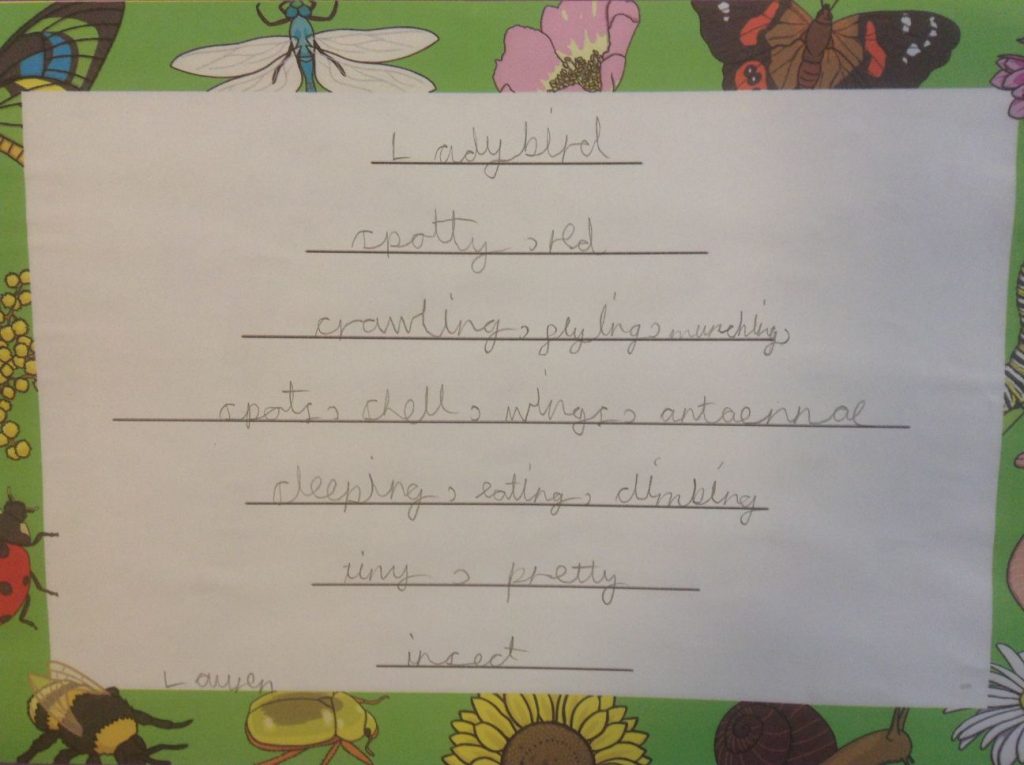 Ladybird
spotty, red
crawling, flying, munching,
spots, shell, wings, antaennae
sleeping, eating, climbing
tiny, pretty
insect
Lauren